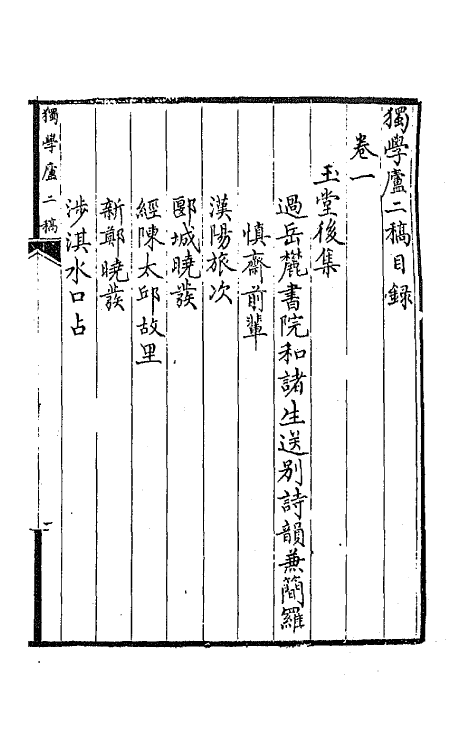 獨學廬二稿目録
卷一
玉堂後集
過岳麓書院和諸生送别詩韻兼簡羅
慎齋前輩
漢陽旅次
郾城曉發
經陳太邱故里
新鄭曉發
涉淇水口占
獨學廬二稿
一